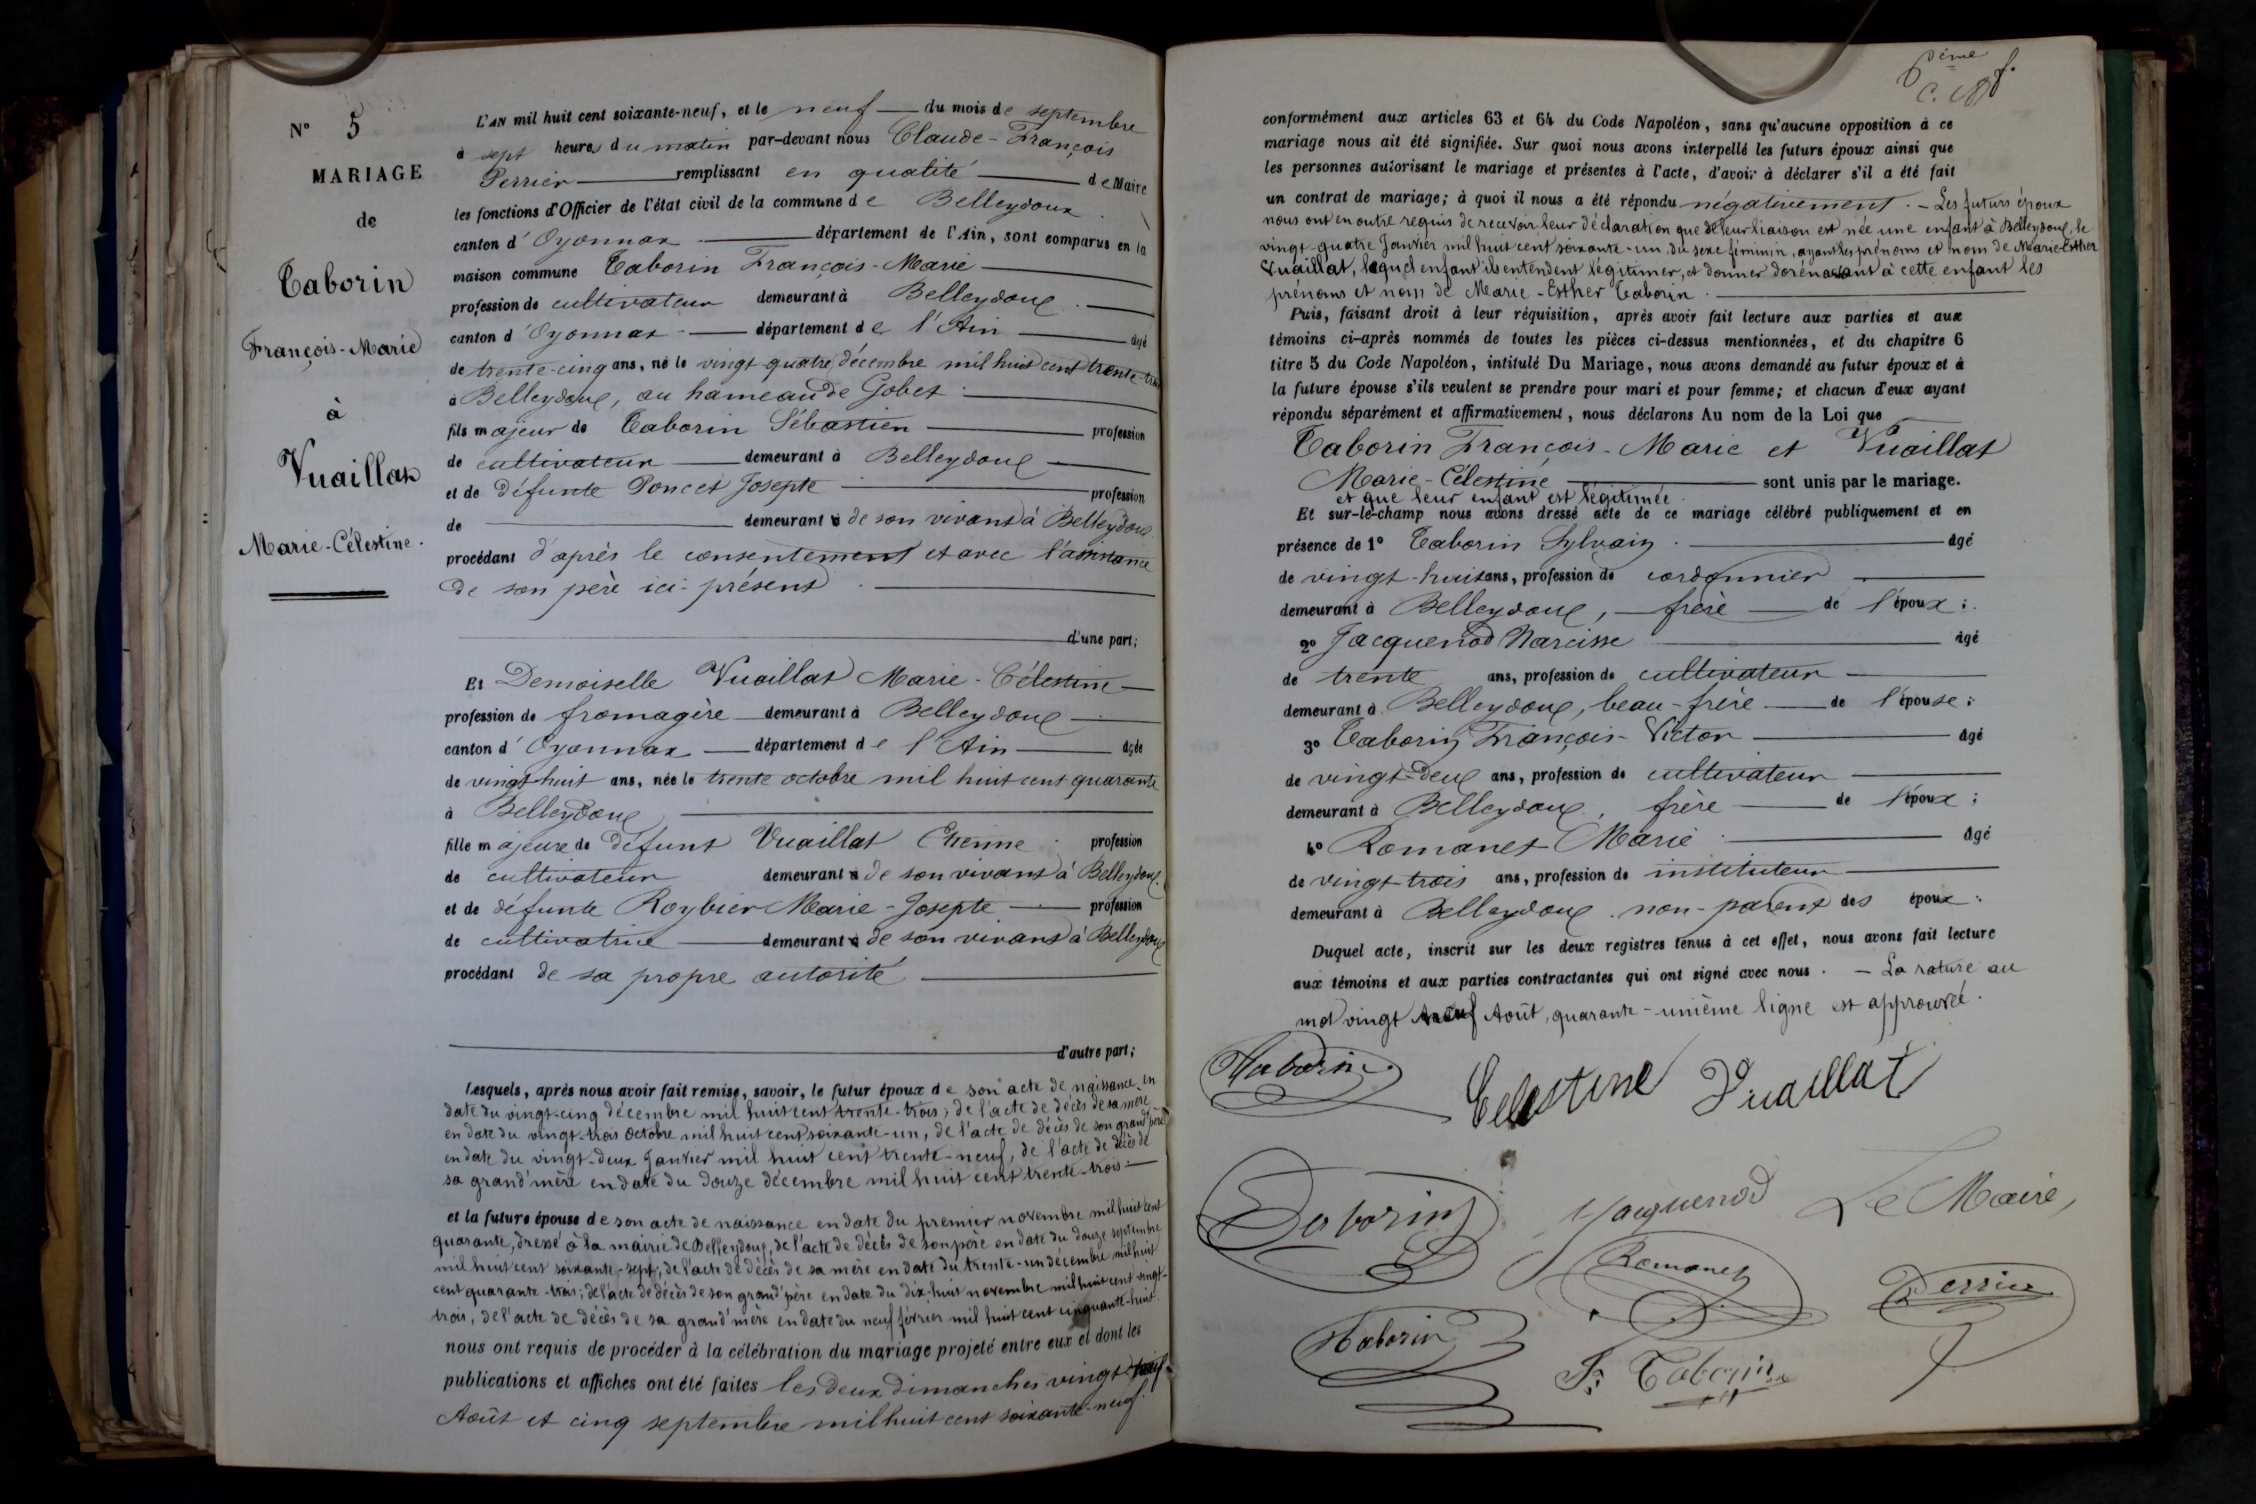 N° 5
MARIAGE
de
Taborin
François-Marie
à
Vuaillat
Marie-Célestine.
L'AN mil huit cent soixante-neuf, et le neuf du mois de septembre
à sept heures du matin par-devant nous Claude-François
Perrier remplissant en qualité de Maire
les fonctions d'Officier de l'état civil de la commune de Belleydoux
canton d'Oyonnax département de l'Ain, sont comparus en la
maison commune Taborin François-Marie
profession de cultivateur demeurant à Belleydoux
canton d'Oyonnax département de l'Ain âgé
de trente-cinq ans, né le vingt-quatre décembre mil huit cent trente-trois
à Belleydoux, au hameau de Gobet
fils majeur de Taborin Sébastien profession
de cultivateur demeurant à Belleydoux
et de défunte Poncet Josepte profession
de demeurant de son vivant à Belleydoux
procédant d'après le consentement et avec l'assistance
de son père ici présent
d'une part;
Et Demoiselle Vuaillat Marie-Célestine
profession de fromagère demeurant à Belleydoux
canton d'Oyonnax département de l'Ain âgée
de vingt-huit ans, née le trente octobre mil huit cent quarante
à Belleydoux
fille majeure de défunt Vuaillat Etienne profession
de cultivateur demeurant à de son vivant à Belleydoux.
et de défunte Roybier Marie-Josepte profession
de cultivatrice demeurant à de son vivant à Belleydoux
procédant de sa propre autorité
d'autre part;
Lesquels, après nous avoir fait remise, savoir, le futur époux de son acte de naissance en
date du vingt-cinq décembre mil huit cent trente-trois; de l'acte de décès de sa mère
en date du vingt-trois octobre mil huit cent soixante-un, de l'acte de décès de son grand'père
en date du vingt-deux Janvier mil huit cent trente-neuf, de l'acte de décès de
sa grand'mère en date du douze décembre mil huit cent trente-trois
et la future épouse de son acte de naissance en date du premier novembre mil huit cent
quarante, dressé à la mairie de Belleydoux, de l'acte de décès de son père en date du douze septembre
mil huit cent soixante-sept, de l'acte de décès de sa mère en date du trente-un décembre mil huit
cent quarante-trois; de l'acte de décès de son grand'père en date du dix-huit novembre mil huit cent vingt-
trois, de l'acte de décès de sa grand'mère en date du neuf février mil huit cent cinquante-huit
nous ont requis de procéder à la célébration du mariage projeté entre eux et dont les
publications et affiches ont été faites les deux dimanches vingt-neuf
Août et cinq septembre mil huit cent soixante-neuf.
6ème
conformément aux articles 63 et 64 du Code Napoléon, sans qu'aucune opposition à ce
mariage nous ait été signifiée. Sur quoi nous avons interpellé les futurs époux ainsi que
les personnes autorisant le mariage et présentes à l'acte, d'avoir à déclarer s'il a été fait
un contrat de mariage; à quoi il nous a été répondu négativement. - Les futurs époux
nous ont en outre requis de recevoir leur déclaration que de leur liaison est née une enfant à Belleydoux, le
vingt-quatre Janvier mil huit cent soixante-un, du sexe féminin, ayant les prénoms et nom de Marie-Esther
Vuaillat, lequel enfant ils entendent légitimer, et donner dorénavant à cette enfant les
prénoms et nom de Marie-Esther Taborin.
Puis, faisant droit à leur réquisition, après avoir fait lecture aux parties et aux
témoins ci-après nommés de toutes les pièces ci-dessus mentionnées, et du chapitre 6
titre 5 du Code Napoléon, intitulé Du Mariage, nous avons demandé au futur époux et à
la future épouse s'ils veulent se prendre pour mari et pour femme; et chacun d'eux ayant
répondu séparément et affirmativement, nous déclarons Au nom de la Loi que
Taborin François-Marie et Vuaillat
Marie-Célestine sont unis par le mariage.
et que leur enfant est légitimée.
Et sur-le-champ nous avons dressé acte de ce mariage célébré publiquement et en
présence de 1° Taborin Sylvain. âgé
de vingt-huit ans, profession de cordonnier
demeurant à Belleydoux, frère de l'époux;
2° Jacquenod Narcisse âgé
de trente ans, profession de cultivateur
demeurant à Belleydoux, beau-frère de l'épouse;
3° Taborin François-Victor âgé
de vingt-deux ans, profession de cultivateur
demeurant à Belleydoux, frère de l'époux;
4° Romanet Marie âgé
de vingt-trois ans, profession de instituteur
demeurant à Belleydoux. non-parent des époux.
Duquel acte, inscrit sur les deux registres tenus à cet effet, nous avons fait lecture
aux témoins et aux parties contractantes qui ont signé avec nous. - La rature au
mot vingt neuf Août, quarante-unième ligne est approuvée.
Taborin
Celestine Vuaillat
Taborin Jacquenod Le Maire,
Romanet Perrier
Taborin
Fs Taborin